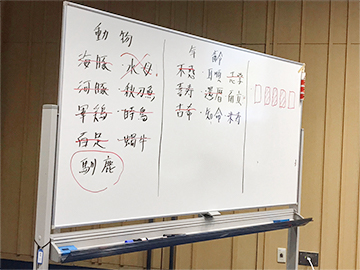 動物
海豚・水母
河豚・秋刀魚
軍鶏・時鳥
百足・蝸牛
馴鹿
年齢
不惑・耳順・志学
喜寿・還暦
古希・知命・米寿